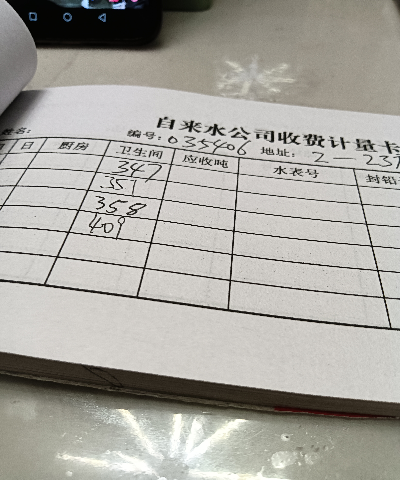 自来水公司收费计量卡
姓名: 编号: 035406 地址: 2-237
日 厨房 卫生间 应收吨 水表号 封铅
347
351
358
409